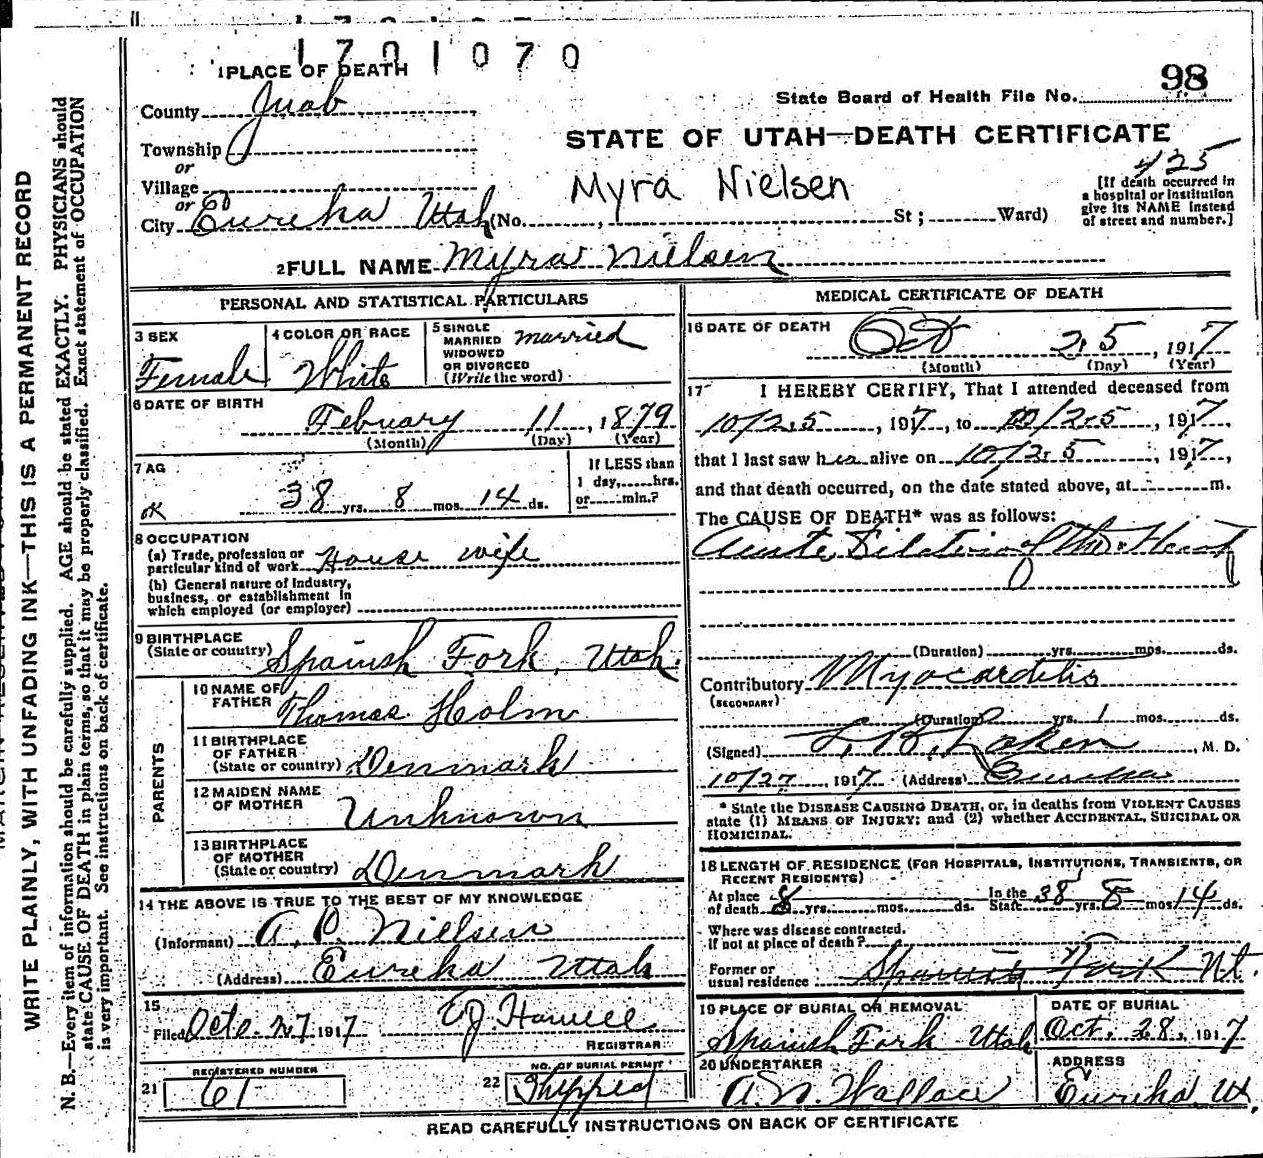 1701070
1 PLACE OF DEATH
98
County Juab
State Board of Health File No.
Township
STATE OF UTAH—DEATH CERTIFICATE
or
Village
Myra Nielsen
425
[If death occurred in
a hospital or institution
give its NAME instead
of street and number.]
or
City Eureka Utah (No. , St ; Ward)
2 FULL NAME Myra Nielsen
PERSONAL AND STATISTICAL PARTICULARS
3 SEX
Female
4 COLOR OR RACE
White
5 SINGLE
MARRIED
WIDOWED
OR DIVORCED
(Write the word)
married
6 DATE OF BIRTH
February 11, 1879
(Month) (Day) (Year)
7 AG
OK
38 yrs. 8 mos. 14 ds.
If LESS than
1 day, hrs.
or min.?
8 OCCUPATION
(a) Trade, profession or
particular kind of work House wife
(b) General nature of Industry,
business, or establishment in
which employed (or employer)
9 BIRTHPLACE
(State or country) Spanish Fork, Utah.
PARENTS
10 NAME OF
FATHER Thomas Holm
11 BIRTHPLACE
OF FATHER
(State or country) Denmark
12 MAIDEN NAME
OF MOTHER Unknown
13 BIRTHPLACE
OF MOTHER
(State or country) Denmark
14 THE ABOVE IS TRUE TO THE BEST OF MY KNOWLEDGE
(Informant) A. P. Nielsen
(Address) Eureka Utah
15
Filed Oct. 27 1917
REGISTRAR
21 REGISTERED NUMBER
61
22 NO. OF BURIAL PERMIT
Shipped
MEDICAL CERTIFICATE OF DEATH
16 DATE OF DEATH
Oct 25, 1917
(Month) (Day) (Year)
17 I HEREBY CERTIFY, That I attended deceased from
10/25, 1917, to 10/25, 1917,
that I last saw her alive on 10/25, 1917,
and that death occurred, on the date stated above, at m.
The CAUSE OF DEATH* was as follows:
Acute Dilation of the Heart
(Duration) yrs. mos. ds.
Contributory Myocarditis
(SECONDARY)
(Duration) yrs. 1 mos. ds.
(Signed) , M. D.
10/27, 1917 (Address) Eureka
* State the DISEASE CAUSING DEATH, or, in deaths from VIOLENT CAUSES
state (1) MEANS OF INJURY; and (2) whether ACCIDENTAL, SUICIDAL OR
HOMICIDAL.
18 LENGTH OF RESIDENCE (FOR HOSPITALS, INSTITUTIONS, TRANSIENTS, OR
RECENT RESIDENTS)
At place
of death 8 yrs. mos. ds.
In the
State 38 yrs. 8 mos 14 ds.
Where was disease contracted.
if not at place of death?
Former or
usual residence Spanish Fork Ut.
19 PLACE OF BURIAL OR REMOVAL
Spanish Fork Utah
DATE OF BURIAL
Oct. 28, 1917
20 UNDERTAKER
A. N. Wallace
ADDRESS
Eureka, Ut.
READ CAREFULLY INSTRUCTIONS ON BACK OF CERTIFICATE
WRITE PLAINLY, WITH UNFADING INK—THIS IS A PERMANENT RECORD
N. B.—Every item of information should be carefully supplied. AGE should be stated EXACTLY. PHYSICIANS should
state CAUSE OF DEATH in plain terms, so that it may be properly classified. Exact statement of OCCUPATION
is very important. See instructions on back of certificate.